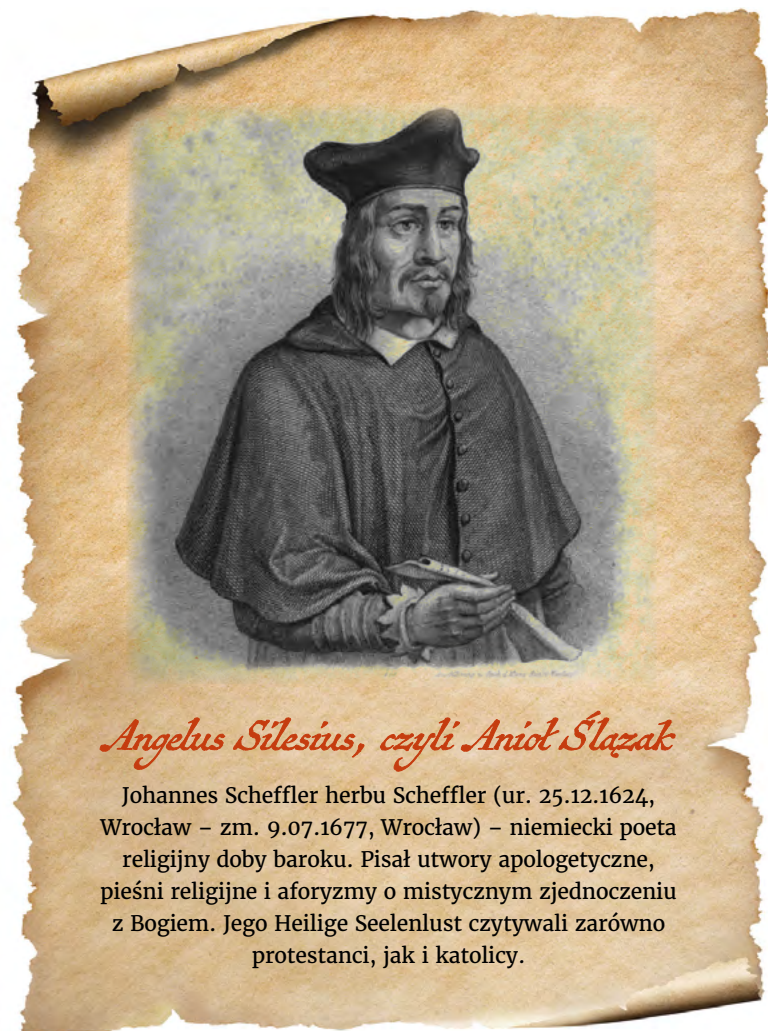 Angelus Silesius, czyli Anioł Ślązak
Johannes Scheffler herbu Scheffler (ur. 25.12.1624,
Wrocław – zm. 9.07.1677, Wrocław) – niemiecki poeta
religijny doby baroku. Pisał utwory apologetyczne,
pieśni religijne i aforyzmy o mistycznym zjednoczeniu
z Bogiem. Jego Heilige Seelenlust czytywali zarówno
protestanci, jak i katolicy.